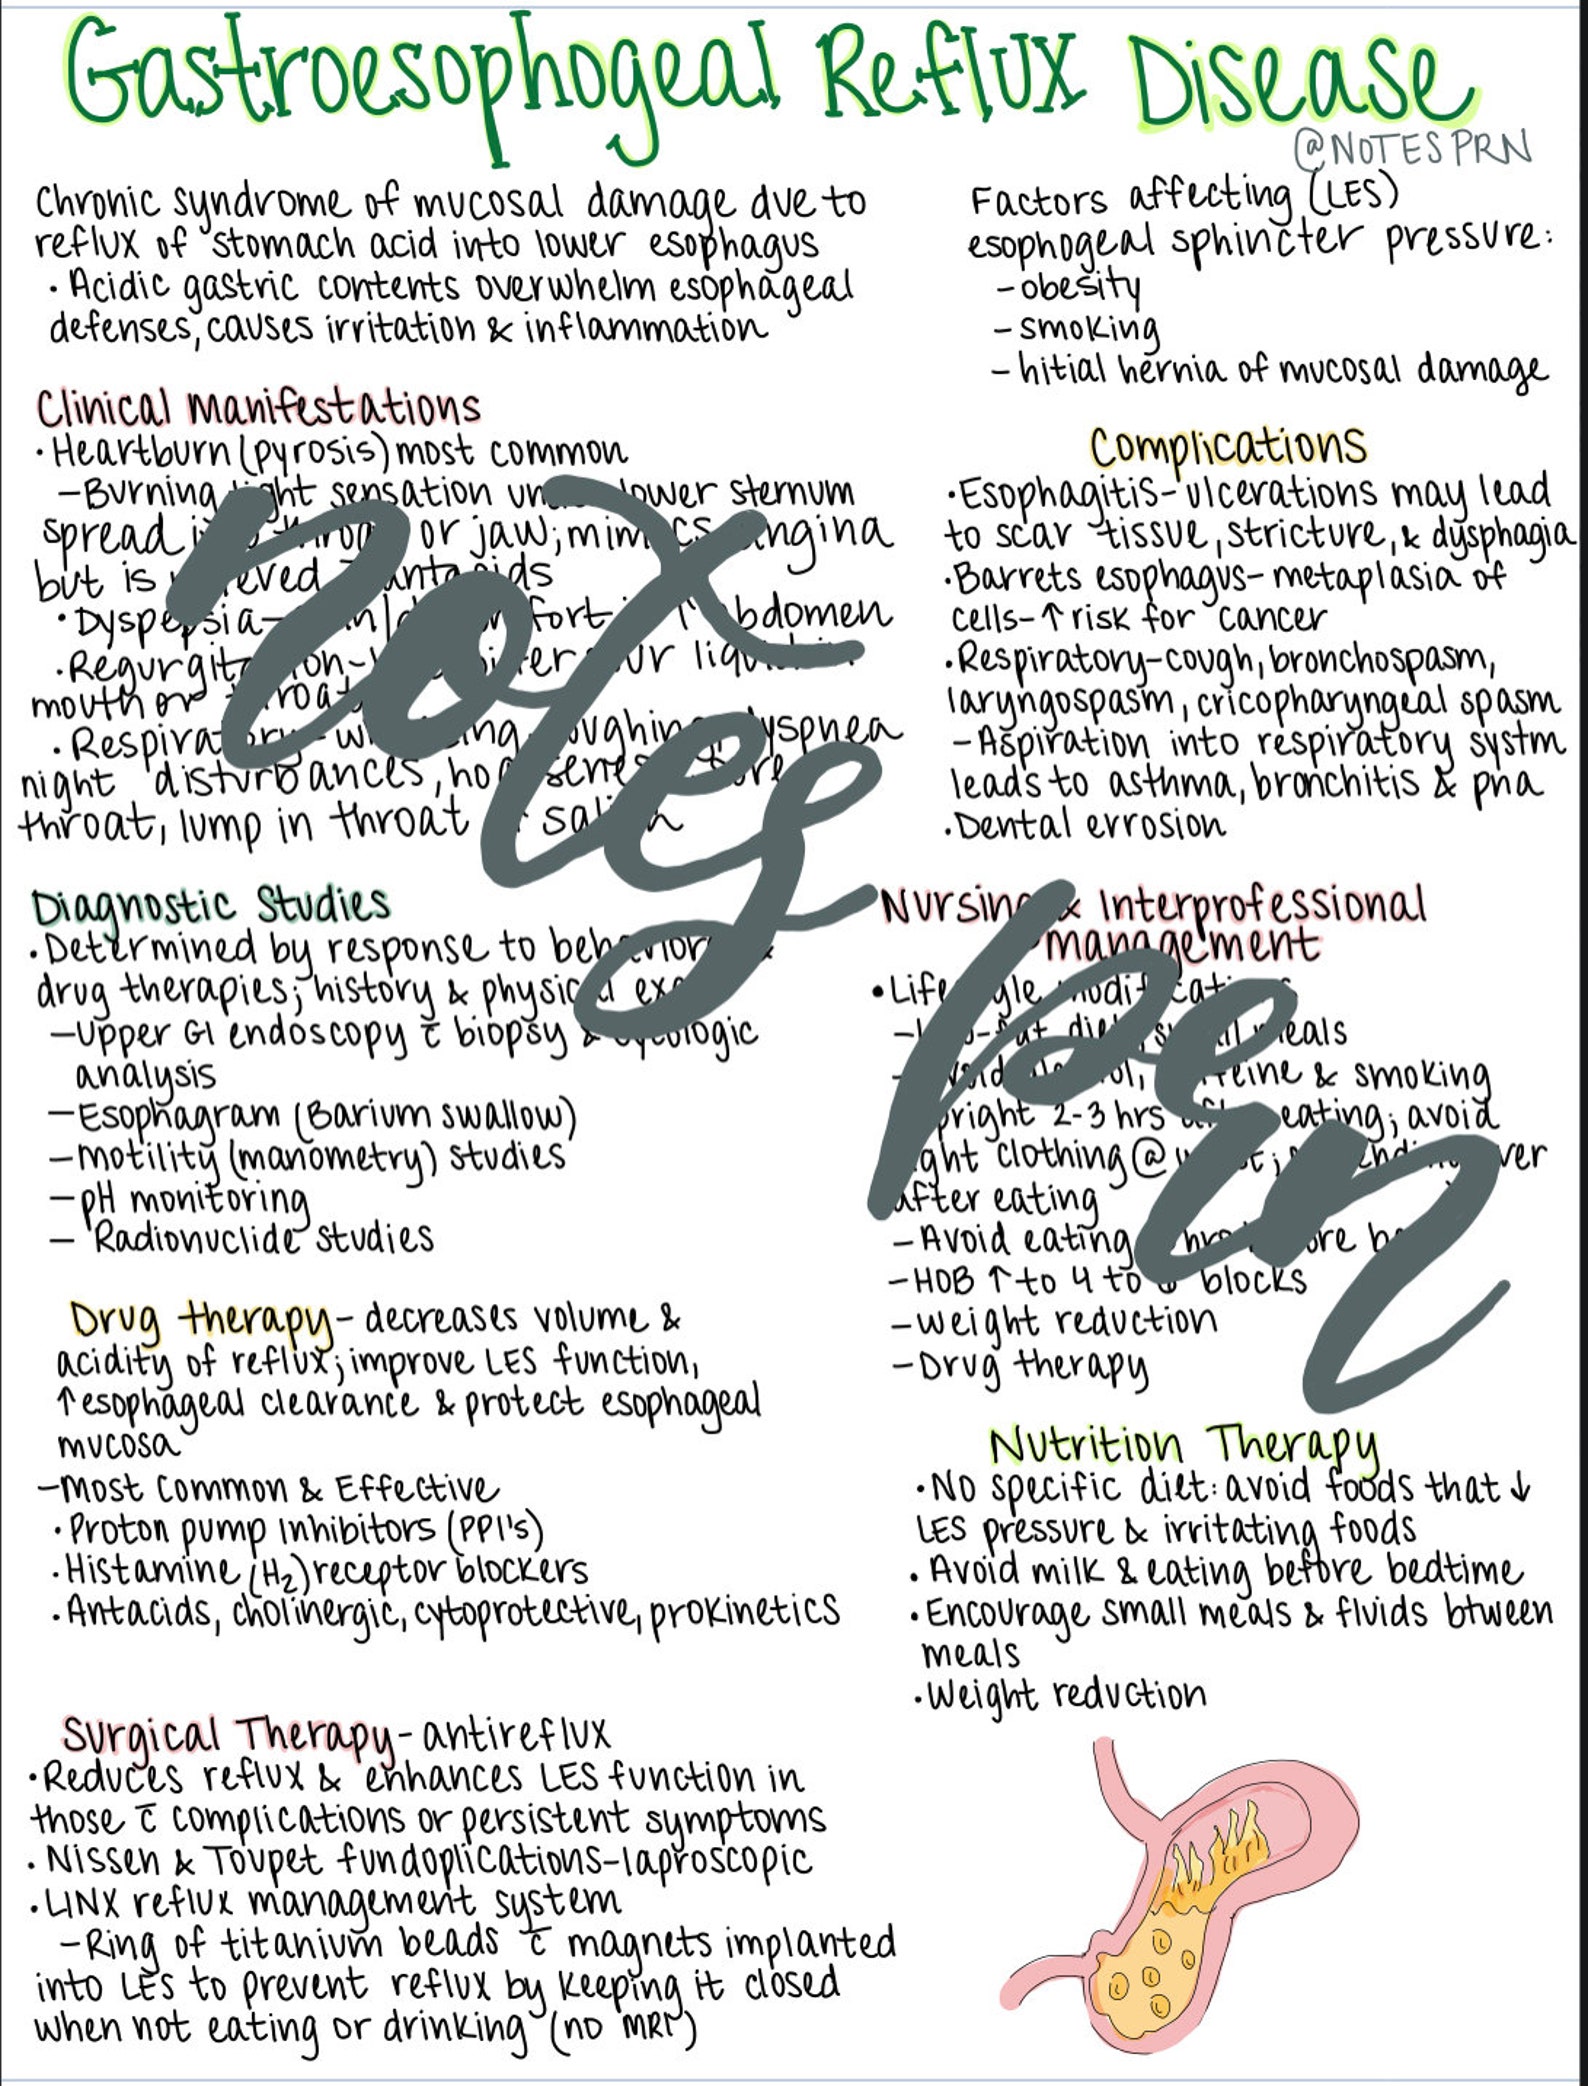 Gastroesophogeal Reflux Disease
@NOTESPRN
Chronic syndrome of mucosal damage due to
reflux of stomach acid into lower esophagus
• Acidic gastric contents overwhelm esophageal
defenses, causes irritation & inflammation
Clinical Manifestations
• Heartburn (pyrosis) most common
- Burning sensation lower sternum
spread or jaw; mimics angina
but is
• Dyspepsia - abdomen
• Regurgitation -
mouth or throat
• Respiratory - coughing, dyspnea
night disturbances, hoarseness,
throat, lump in throat
Diagnostic Studies
• Determined by response to behavioral &
drug therapies; history & physical
- Upper GI endoscopy c̄ biopsy & cytologic
analysis
- Esophagram (Barium swallow)
- Motility (manometry) studies
- pH monitoring
- Radionuclide studies
Drug therapy - decreases volume &
acidity of reflux; improve LES function,
↑ esophageal clearance & protect esophageal
mucosa
- Most Common & Effective
• Proton pump Inhibitors (PPI's)
• Histamine (H2) receptor blockers
• Antacids, cholinergic, cytoprotective, prokinetics
Surgical Therapy - antireflux
• Reduces reflux & enhances LES function in
those c̄ complications or persistent symptoms
• Nissen & Toupet fundoplications - laproscopic
• LINX reflux management system
- Ring of titanium beads c̄ magnets implanted
into LES to prevent reflux by keeping it closed
when not eating or drinking (no MRI)
Factors affecting (LES)
esophogeal sphincter pressure:
- obesity
- smoking
- hitial hernia of mucosal damage
Complications
• Esophagitis - ulcerations may lead
to scar tissue, stricture, & dysphagia
• Barrets esophagus - metaplasia of
cells - ↑ risk for cancer
• Respiratory - cough, bronchospasm,
laryngospasm, cricopharyngeal spasm
- Aspiration into respiratory systm
leads to asthma, bronchitis & pna
• Dental errosion
Nursing & Interprofessional
management
• Lifestyle modifications
- meals
- & smoking
2-3 hrs eating; avoid
clothing @
after eating
- Avoid eating
- HOB ↑ to 4 to blocks
- weight reduction
- Drug therapy
Nutrition Therapy
• No specific diet: avoid foods that ↓
LES pressure & irritating foods
• Avoid milk & eating before bedtime
• Encourage small meals & fluids btween
meals
• Weight reduction
notes
prn